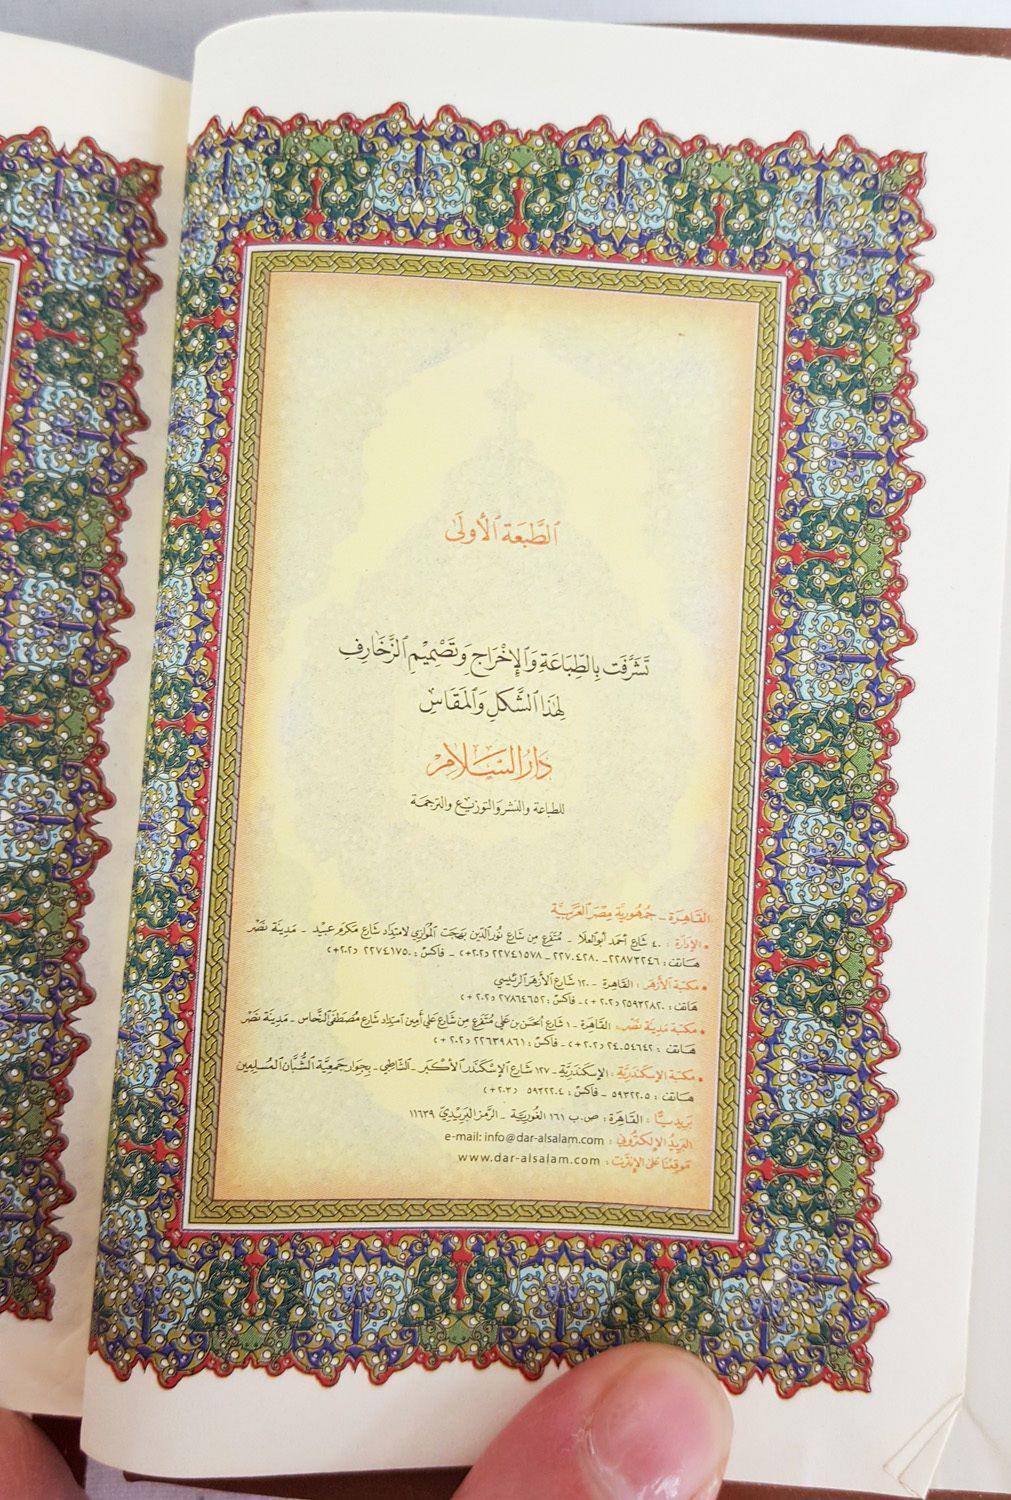 الطَّبعَة الأولىٰ
تَشَرَّفَت بِالطِّبَاعَةِ وَالإِخْرَاجِ وَتَصْمِيْمِ الزَّخَارِفِ
لِهٰذَا الشَّكلِ وَالمَقَاسِ
دَارُ السَّلَامِ
للطباعة والنشر والتوزيع والترجمة
القَاهِرَة - جُمهُوريَّة مِصْرَ العَرَبيَّة
• الإدَارَة : ٤٠ شَارع أحمَد أبو العلَا - مُتَفَرِّع مِن شَارع نُور الدِّين بَهجَت المُوَازي لامتِدَاد شَارع مَكرَم عبَيد - مَدينَة نَصْر
هَاتف : ٢٢٨٧٣٢٤٦ - ٢٢٧٠٤٢٨٠ - ٢٢٧٤١٥٧٨ (٢٠٢+) - فَاكسْ : ٢٢٧٤١٧٥٠ (٢٠٢+)
• مَكتبَة الأزهَر : القَاهِرَة - ١٢٠ شَارع الأزهَر الرئيسي
هَاتف : ٢٥٩٣٢٨٢٠ (٢٠٢+) - فَاكسْ : ٢٧٨٦٤٦٥٢ (٢٠٢+)
• مَكتبَة مَدينَة نَصْر : القَاهِرَة - ١ شَارع الحَسَن بن عَلي مُتَفَرِّع مِن شَارع عَلي أمِين امتِدَاد شَارع مُصْطَفَى النَّحَّاس - مَدينَة نَصْر
هَاتف : ٢٤٠٥٤٦٤٢ (٢٠٢+) - فَاكسْ : ٢٢٦٣٩٨٦١ (٢٠٢+)
• مَكتبَة الإسْكندَريَّة : الإسْكندَريَّة - ١٢٧ شَارع الإسْكندَر الأكبَر - الشَّاطِبي - بِجوَار جَمعيَّة الشُّبَّان المُسْلِمين
هَاتف : ٥٩٣٢٢٠٥ فَاكسْ : ٥٩٣٢٢٠٤ (٢٠٣+)
بَريديًّا : القَاهِرَة : ص.ب ١٦١ الغُوريَّة - الرَّمزُ البَريديّ ١١٦٣٩
البَريدُ الإلِكتُرُونيّ : e-mail: info@dar-alsalam.com
مَوقِعُنَا عَلى الإنترنت : www.dar-alsalam.com